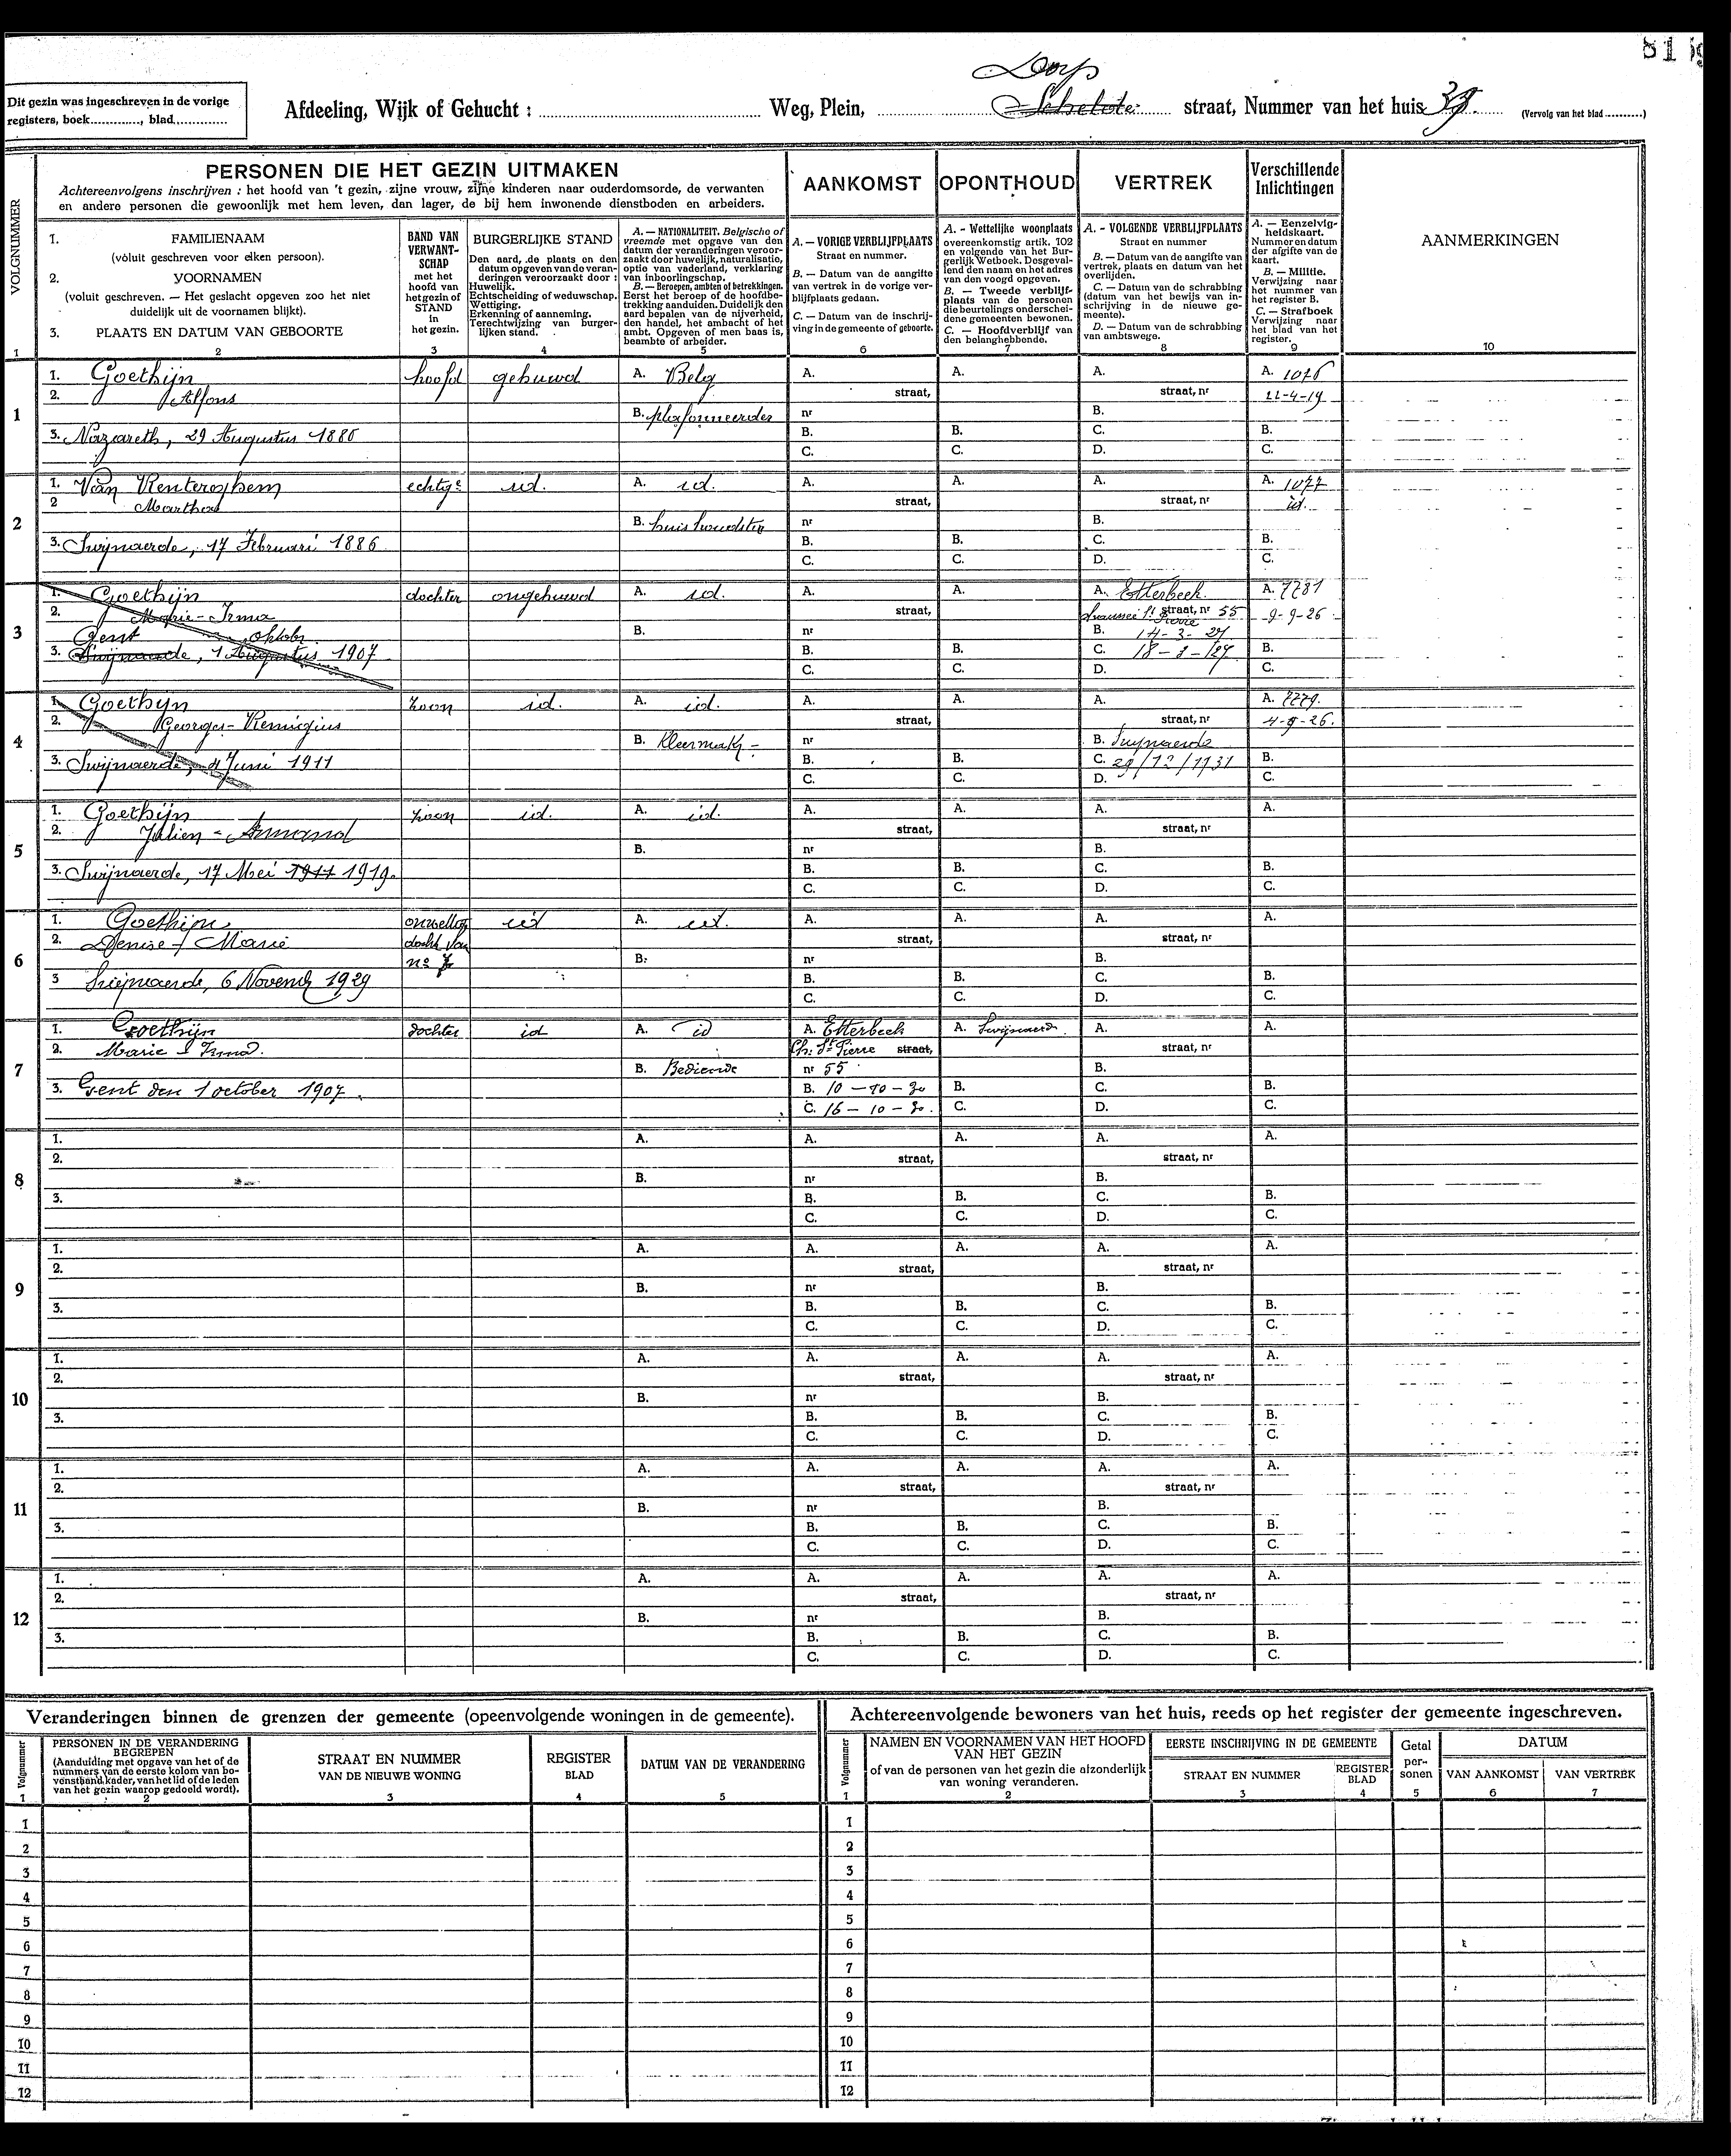 81
Dorp
Dit gezin was ingeschreven in de vorige
registers, boek............, blad..............
Afdeeling, Wijk of Gehucht : Weg, Plein, Schelde straat, Nummer van het huis (Vervolg van het blad ..........)
PERSONEN DIE HET GEZIN UITMAKEN
Achtereenvolgens inschrijven : het hoofd van 't gezin, zijne vrouw, zijne kinderen naar ouderdomsorde, de verwanten
en andere personen die gewoonlijk met hem leven, dan lager, de bij hem inwonende dienstboden en arbeiders.
AANKOMST
OPONTHOUD
VERTREK
Verschillende
Inlichtingen
VOLGNUMMER
1. FAMILIENAAM
(voluit geschreven voor elken persoon).
2. VOORNAMEN
(voluit geschreven. — Het geslacht opgeven zoo het niet
duidelijk uit de voornamen blijkt).
3. PLAATS EN DATUM VAN GEBOORTE
BAND VAN
VERWANT-
SCHAP
met het
hoofd van
het gezin of
STAND
in
het gezin.
BURGERLIJKE STAND
Den aard, de plaats en den
datum opgeven van de veran-
deringen veroorzaakt door :
Huwelijk.
Echtscheiding of weduwschap.
Wettiging.
Erkenning of aanneming.
Terechtwijzing van burger-
lijken stand.
A. — NATIONALITEIT. Belgische of
vreemde met opgave van den
datum der veranderingen veroor-
zaakt door huwelijk, naturalisatie,
optie van vaderland, verklaring
van inboorlingschap.
B. — Beroepen, ambten of betrekkingen.
Eerst het beroep of de hoofdbe-
trekking aanduiden. Duidelijk den
aard bepalen van de nijverheid,
den handel, het ambacht of het
ambt. Opgeven of men baas is,
beambte of arbeider.
A. — VORIGE VERBLIJFPLAATS
Straat en nummer.
B. — Datum van de aangifte
van vertrek in de vorige ver-
blijfplaats gedaan.
C. — Datum van de inschrij-
ving in de gemeente of geboorte.
A. - Wettelijke woonplaats
overeenkomstig artik. 102
en volgende van het Bur-
gerlijk Wetboek. Desgeval-
lend den naam en het adres
van den voogd opgeven.
B. — Tweede verblijf-
plaats van de personen
die beurtelings onderschei-
dene gemeenten bewonen.
C. — Hoofdverblijf van
den belanghebbende.
A. - VOLGENDE VERBLIJFPLAATS
Straat en nummer
B. — Datum van de aangifte van
vertrek, plaats en datum van het
overlijden.
C. — Datum van de schrabbing
(datum van het bewijs van in-
schrijving in de nieuwe ge-
meente).
D. — Datum van de schrabbing
van ambtswege.
A. — Eenzelvig-
heidskaart.
Nummer en datum
der afgifte van de
kaart.
B. — Militie.
Verwijzing naar
het nummer van
het register B.
C. — Strafboek
Verwijzing naar
het blad van het
register.
AANMERKINGEN
1 2 3 4 5 6 7 8 9 10
1. Goethijn hoofd gehuwd A. Belg A. A. A. A. 1076
2. Alfons straat, straat, nr 22-4-19
1 B. plafonneerder nr B.
3. Nazareth, 29 Augustus 1886 B. B. C. B.
C. C. D. C.
1. Van Renterghem echtge id. A. id. A. A. A. A. 1077
2 Martha straat, straat, nr id.
2 B. huishoudster nr B.
3. Swijnaerde, 17 Februari 1886 B. B. C. B.
C. C. D. C.
1. Goethijn dochter ongehuwd A. id. A. A. A. Etterbeek A. 7781
2. Marie-Irma straat, chaussée St Pierre straat, nr 55 9-9-26
3 Gent oktobr. B. nr B. 14-3-27
3. Swijnaerde, 1 Augustus 1907 B. B. C. 18-3-127 B.
C. C. D. C.
1. Goethijn zoon id. A. id. A. A. A. A. 7779.
2. Georges-Remigius straat, straat, nr 4-9-26.
4 B. Kleermak- nr B. Swynaerde
3. Swijnaerde, 4 Juni 1911 B. B. C. 29/12/1931 B.
C. C. D. C.
1. Goethijn zoon id. A. id. A. A. A. A.
2. Julien - Armand straat, straat, nr
5 B. nr B.
3. Swijnaerde, 17 Mei 1911 1919. B. B. C. B.
C. C. D. C.
1. Goethijn id A. id. A. A. A. A.
2. Denise - Marie docht van straat, straat, nr
6 no 7 B. nr B.
3 Swijnaerde, 6 Novemb 1929 B. B. C. B.
C. C. D. C.
1. Goethijn dochter id A. id A. Etterbeek A. Swijnaerde A. A.
2. Marie - Irma. Ch. St Pierre straat, straat, nr
7 B. Bediende nr 55 B.
3. Gent den 1 october 1907. B. 10-10-30 B. C. B.
C. 16-10-30. C. D. C.
1. A. A. A. A. A.
2. straat, straat, nr
8 B. nr B.
3. B. B. C. B.
C. C. D. C.
1. A. A. A. A. A.
2. straat, straat, nr
9 B. nr B.
3. B. B. C. B.
C. C. D. C.
1. A. A. A. A. A.
2. straat, straat, nr
10 B. nr B.
3. B. B. C. B.
C. C. D. C.
1. A. A. A. A. A.
2. straat, straat, nr
11 B. nr B.
3. B. B. C. B.
C. C. D. C.
1. A. A. A. A. A.
2. straat, straat, nr
12 B. nr B.
3. B. B. C. B.
C. C. D. C.
Veranderingen binnen de grenzen der gemeente (opeenvolgende woningen in de gemeente).
Volgnummer
PERSONEN IN DE VERANDERING
BEGREPEN
(Aanduiding met opgave van het of de
nummers van de eerste kolom van bo-
venstaand kader, van het lid of de leden
van het gezin waarop gedoeld wordt).
STRAAT EN NUMMER
VAN DE NIEUWE WONING
REGISTER
BLAD
DATUM VAN DE VERANDERING
1 2 3 4 5
1
2
3
4
5
6
7
8
9
10
11
12
Achtereenvolgende bewoners van het huis, reeds op het register der gemeente ingeschreven.
Volgnummer
NAMEN EN VOORNAMEN VAN HET HOOFD
VAN HET GEZIN
of van de personen van het gezin die afzonderlijk
van woning veranderen.
EERSTE INSCHRIJVING IN DE GEMEENTE
STRAAT EN NUMMER
REGISTER
BLAD
Getal
per-
sonen
DATUM
VAN AANKOMST
VAN VERTREK
1 2 3 4 5 6 7
1
2
3
4
5
6
7
8
9
10
11
12